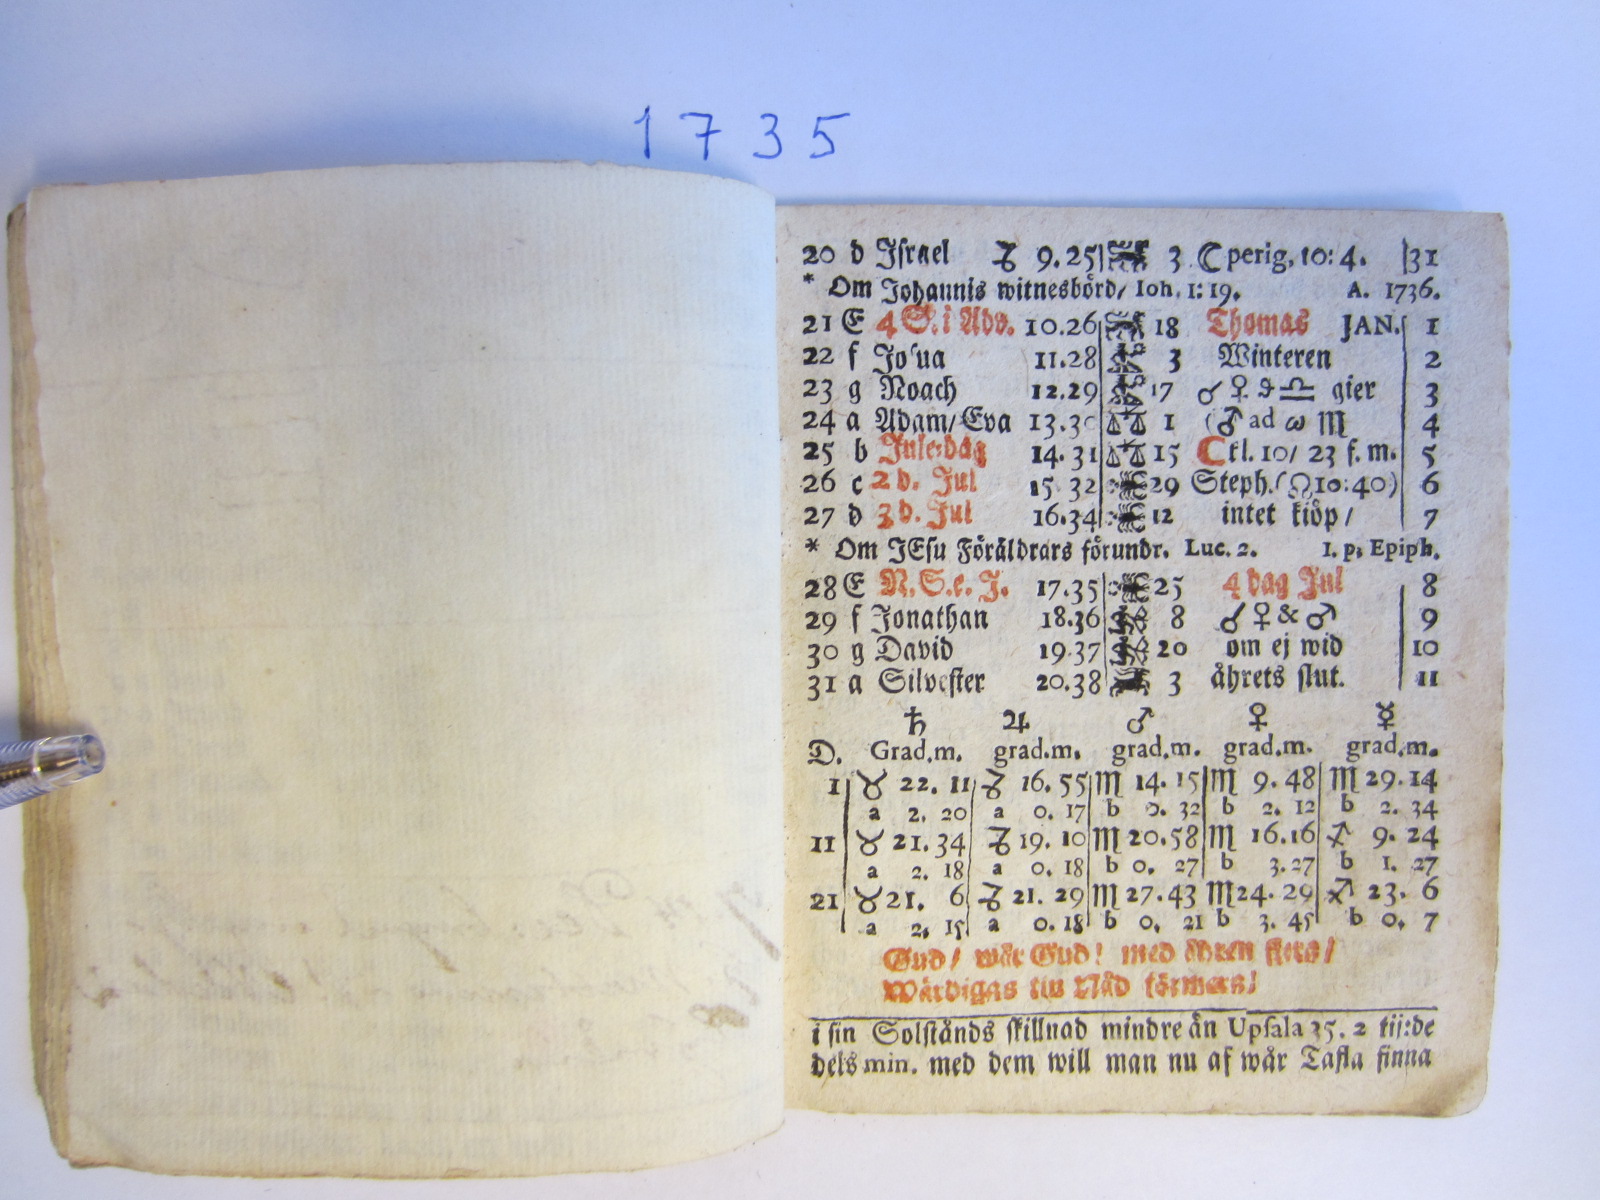 1735
20 d Israel ♑ 9.25 3 ☾ perig, 10: 4. 31
* Om Johannis witnesbörd/ Ioh. 1: 19. A. 1736.
21 E 4 S. i Adv. 10.26 18 Thomas JAN. 1
22 f Josua 11.28 3 Winteren 2
23 g Noach 12.29 17 ☌ ♀ ♎ gier 3
24 a Adam/ Eva 13.30 1 (♂ ad ω ♏ 4
25 b Juledag 14.31 15 ☾ kl. 10/ 23 f. m. 5
26 c 2 d. Jul 15 32 29 Steph. (☊ 10:40) 6
27 d 3 d. Jul 16.34 12 intet kiöp/ 7
* Om JEsu Föräldrars förundr. Luc. 2. 1. p. Epiph.
28 E N. S. e. J. 17.35 25 4 dag Jul 8
29 f Jonathan 18.36 8 ☌ ♀ & ♂ 9
30 g David 19.37 20 om ej wid 10
31 a Silvester 20.38 3 åhrets slut. 11
♄ ♃ ♂ ♀ ☿
D. Grad.m. grad.m. grad.m. grad.m. grad.m.
1 ♉ 22. 11 ♑ 16. 55 ♏ 14. 15 ♏ 9. 48 ♏ 29. 14
a 2. 20 a 0. 17 b 0. 32 b 2. 12 b 2. 34
11 ♉ 21. 34 ♑ 19. 10 ♏ 20.58 ♏ 16.16 ♐ 9. 24
a 2. 18 a 0. 18 b 0. 27 b 3.27 b 1. 27
21 ♉ 21. 6 ♑ 21. 29 ♏ 27.43 ♏ 24. 29 ♐ 23. 6
a 2. 15 a 0. 18 b 0. 21 b 3. 45 b 0. 7
Gud/ wår Gud! med åhren
Wärdigas Nåd
i sin Solstånds skillnad mindre än Upsala 35. 2 tij:de
dels min. med dem will man nu af wår Tafla finna